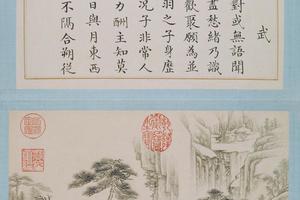 武
對或無語聞
盡愁緒乃識
歡聚願為並
羽之子身歷
況子非常人
力酬主知莫
日與月東西
不隔合朔從